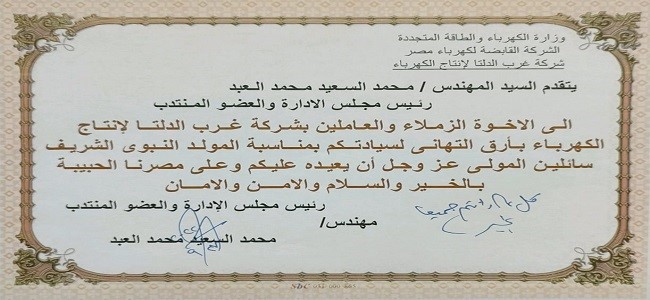 وزارة الكهرباء والطاقة المتجددة
الشركة القابضة لكهرباء مصر
شركة غرب الدلتا لإنتاج الكهرباء
يتقدم السيد المهندس / محمد السعيد محمد العبد
رئيس مجلس الادارة والعضو المنتدب
الى الاخوة الزملاء والعاملين بشركة غرب الدلتا لإنتاج
الكهرباء بأرق التهانى لسيادتكم بمناسبة المولد النبوى الشريف
سائلين المولى عز وجل أن يعيده عليكم وعلى مصرنا الحبيبة
بالخير والسلام والامن والامان
رئيس مجلس الإدارة والعضو المنتدب
كل عام وانتم جميعا
بخير
مهندس/
محمد السعيد محمد العبد